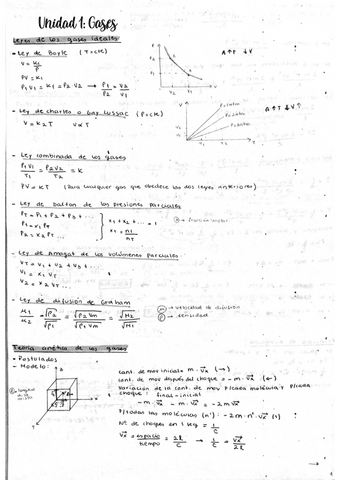 Unidad 1: Gases
Leyes de los gases ideales
- Ley de Boyle (T=ctte)
V = K₁/P
PV = K₁
P₁V₁ = K₁ = P₂·V₂ → P₁/P₂ = V₂/V₁
A ↑P ↓V
- Ley de Charles o Gay Lussac (P=ctte)
V = K₂T V∝T
A ↑T ↓V?
- Ley combinada de los gases
P₁V₁/T₁ = P₂V₂/T₂ = K
PV = KT (Para cualquier gas que obedece las dos leyes anteriores)
- Ley de Dalton de las presiones parciales
PT = P₁ + P₂ + P₃ + ...
P₁ = x₁ PT
P₂ = x₂ PT ...
x₁ + x₂ + ... = 1
x₁ = n₁/nT
fracción molar
- Ley de Amagat de los volúmenes parciales.
VT = V₁ + V₂ + V₃ + ...
V₁ = x₁ VT
V₂ = x₂ VT ...
- Ley de difusión de Graham
μ₁/μ₂ = √ρ₂/√ρ₁ = √ρ₂Vm/√ρ₁Vm = √M₂/√M₁
μ → velocidad de difusión
ρ → densidad
Teoría cinética de los gases
- Postulados
- Modelo:
cant. de mov inicial = m·vx (→)
cant. de mov después del choque = -m·vx (←)
Variación de la cant. de mov p/cada molécula y p/cada
choque: final - inicial
-m·vx - m·vx = -2mvx
P/todas las moléculas (n'): -2m·n'·vx (1)
N° de choques en 1 seg = 1/t
vx = espacio/tiempo = 2l/t → 1/t = vx/2l